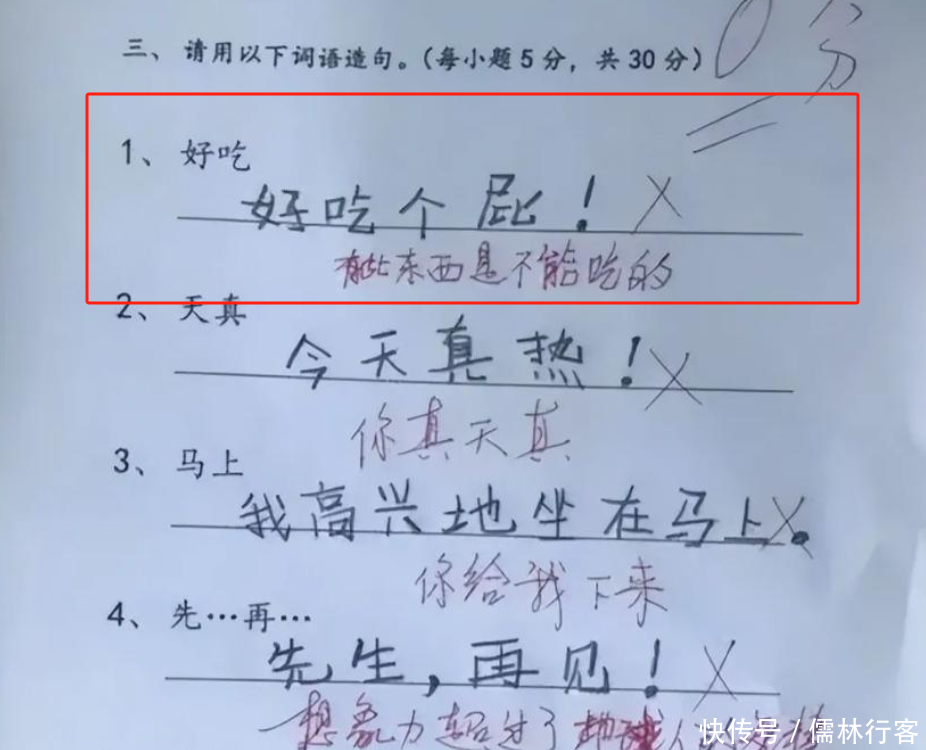 三、请用以下词语造句。(每小题5分，共30分)
0分
1、好吃
好吃个屁！
有些东西是不能吃的
2、天真
今天真热！
你真天真
3、马上
我高兴地坐在马上。
你给我下来
4、先…再…
先生，再见！
想象力超过了地球人
快传号／儒林行客